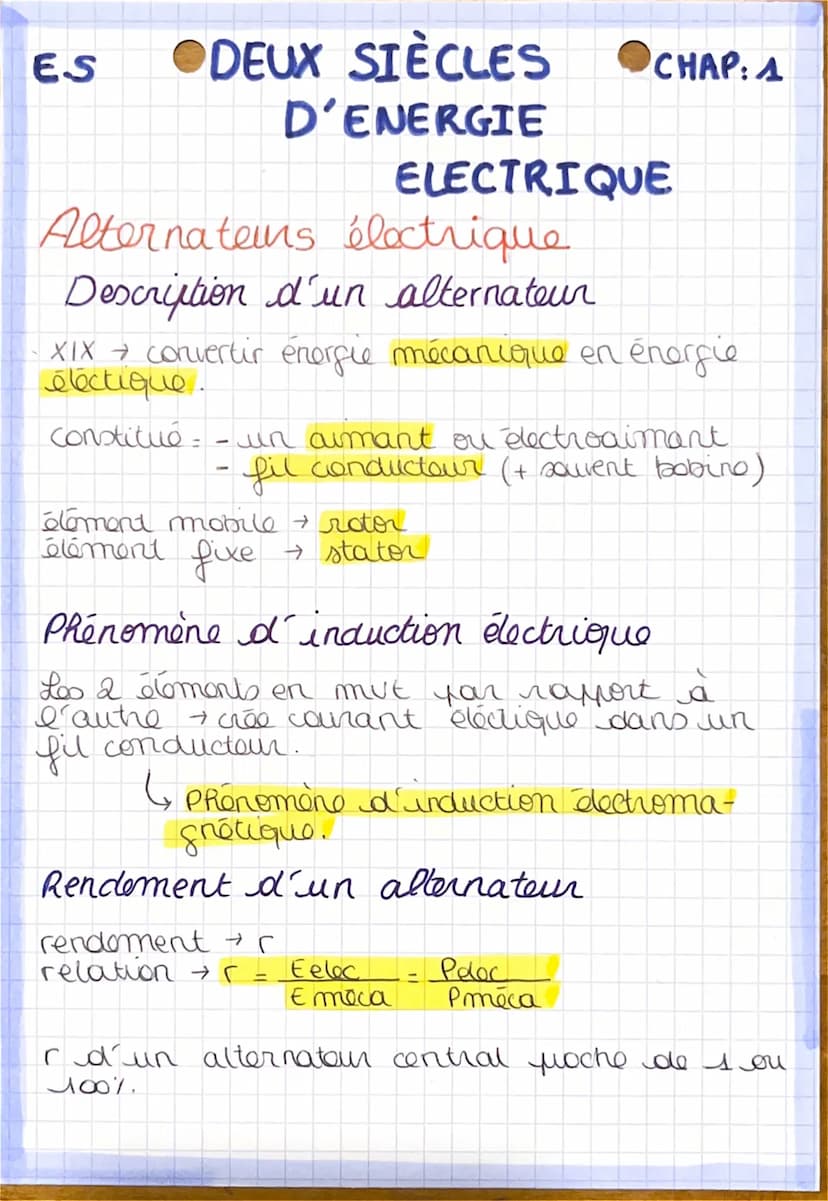 E.S DEUX SIÈCLES CHAP: 1
D'ENERGIE
ELECTRIQUE
Alternateurs électrique
Description d'un alternateur
XIX → convertir énergie mécanique en énergie
éléctique.
constitué = - un aimant ou électroaimant
- fil conducteur (+ souvent bobine)
élément mobile → rotor
élément fixe → stator
Phénomène d'induction électrique
Les 2 éléments en mvt par rapport à
l'autre → crée courant éléctique dans un
fil conducteur.
↳ Phénomène d'induction électroma-
gnétique.
Rendement d'un alternateur
rendement → r
relation → r = Eelec = Pelec
Eméca Pméca
r d'un alternateur central proche de 1 ou
100%.